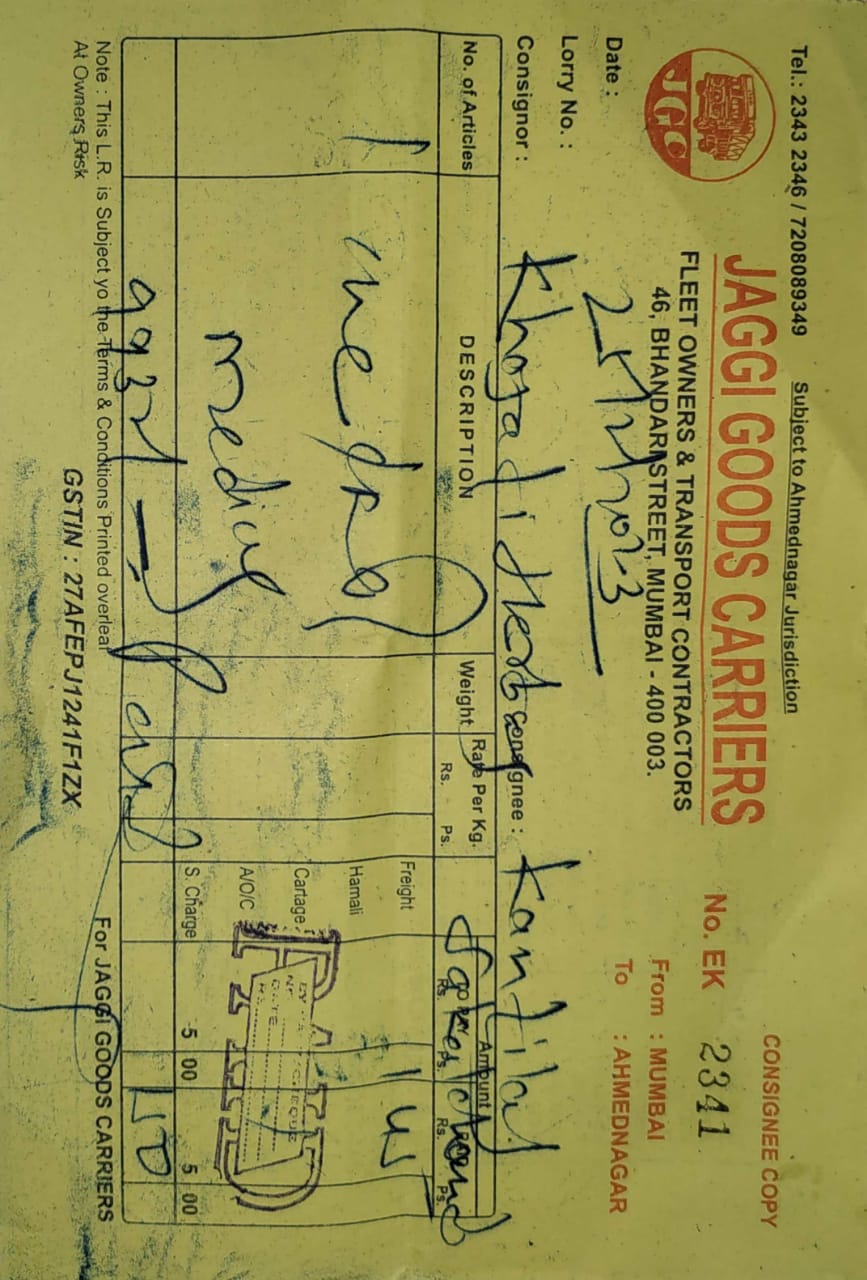 Tel.: 2343 2346 / 7208089349 Subject to Ahmednagar Jurisdiction
CONSIGNEE COPY
JGC
JAGGI GOODS CARRIERS
FLEET OWNERS & TRANSPORT CONTRACTORS
46, BHANDARI STREET, MUMBAI - 400 003.
No. EK 2341
From : MUMBAI
To : AHMEDNAGAR
Date : 25/2/2023
Lorry No. :
Consignor : Khojati Herb Consignee : Kantilal
No. of Articles DESCRIPTION Weight Rate Per Kg. Rs. Ps. Amount
Rs. Ps. Rs. Ps.
1
Medical
Freight 145
Hamali
Cartage
PAID
A/O/C
S. Charge 5 00 5 00
150
Note : This L.R. is Subject yo the Terms & Conditions Printed overleaf
At Owners Risk
GSTIN : 27AFEPJ1241F1ZX
For JAGGI GOODS CARRIERS